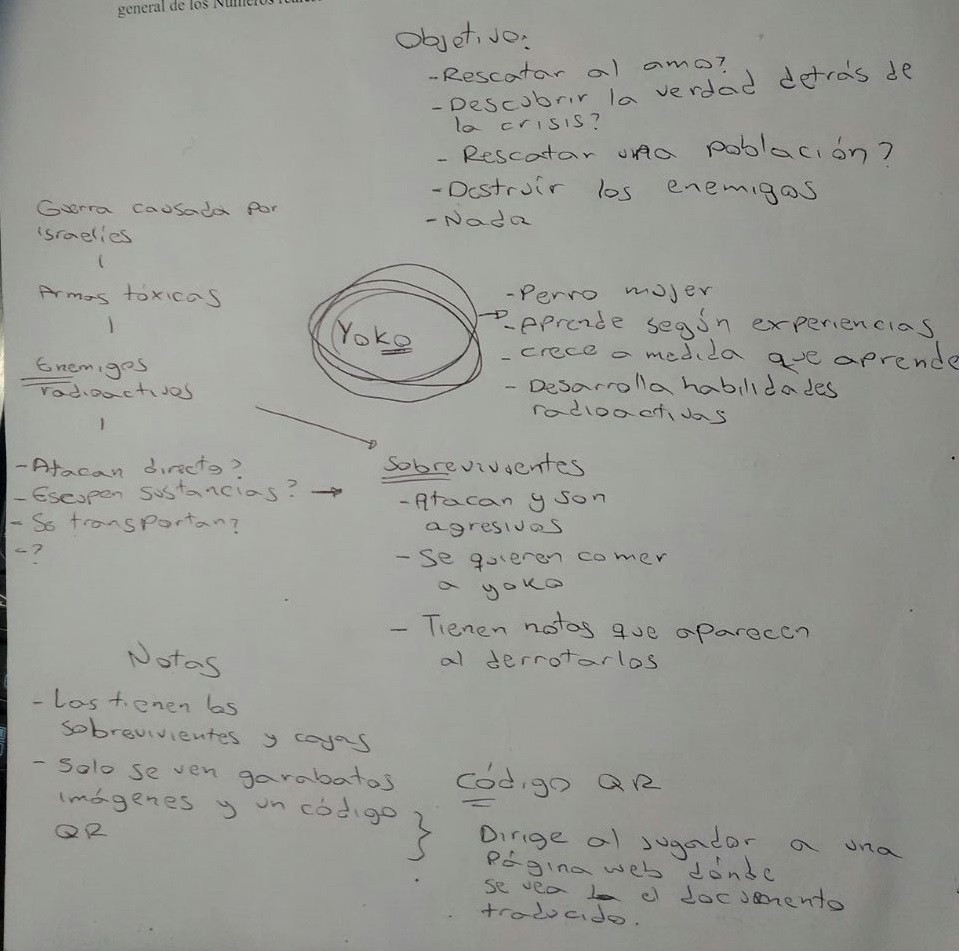 general de los Números
Objetivo:
-Rescatar al amo?
-Descobrir la verdad detrás de
la crisis?
- Rescatar una población?
-Destruir los enemigos
-Nada
Guerra causada por
israelíes
Armas tóxicas
Enemigos
radioactivos
-Atacan directo?
-Escupen sustancias?
- Se transportan?
-?
Yoko
-Perro mujer
-Aprende según experiencias
-crece a medida que aprende
- Desarrolla habilidades
radioactivas
Sobrevivientes
-Atacan y son
agresivos
- Se quieren comer
a yoko
- Tienen notas que aparecen
al derrotarlos
Notas
- Las tienen los
sobrevivientes y cajas
- Solo se ven garabatos
imágenes y un código
QR
Código QR
Dirige al jugador a una
Página web dónde
se vea el documento
traducido.